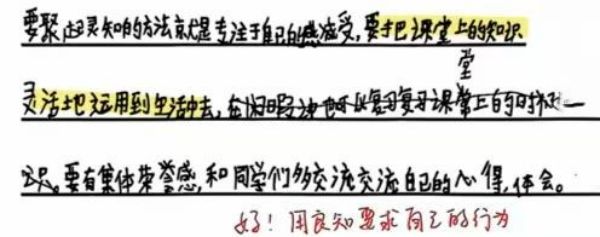 要聚起灵知的方法就是专注于自己的感受,要把课堂上的知识
堂
灵活地运用到生活中去,在闲暇之也可以复习复习课堂上的时
识。要有集体荣誉感,和同学们多交流交流自己的心得,体会。
好!用良知要求自己的行为